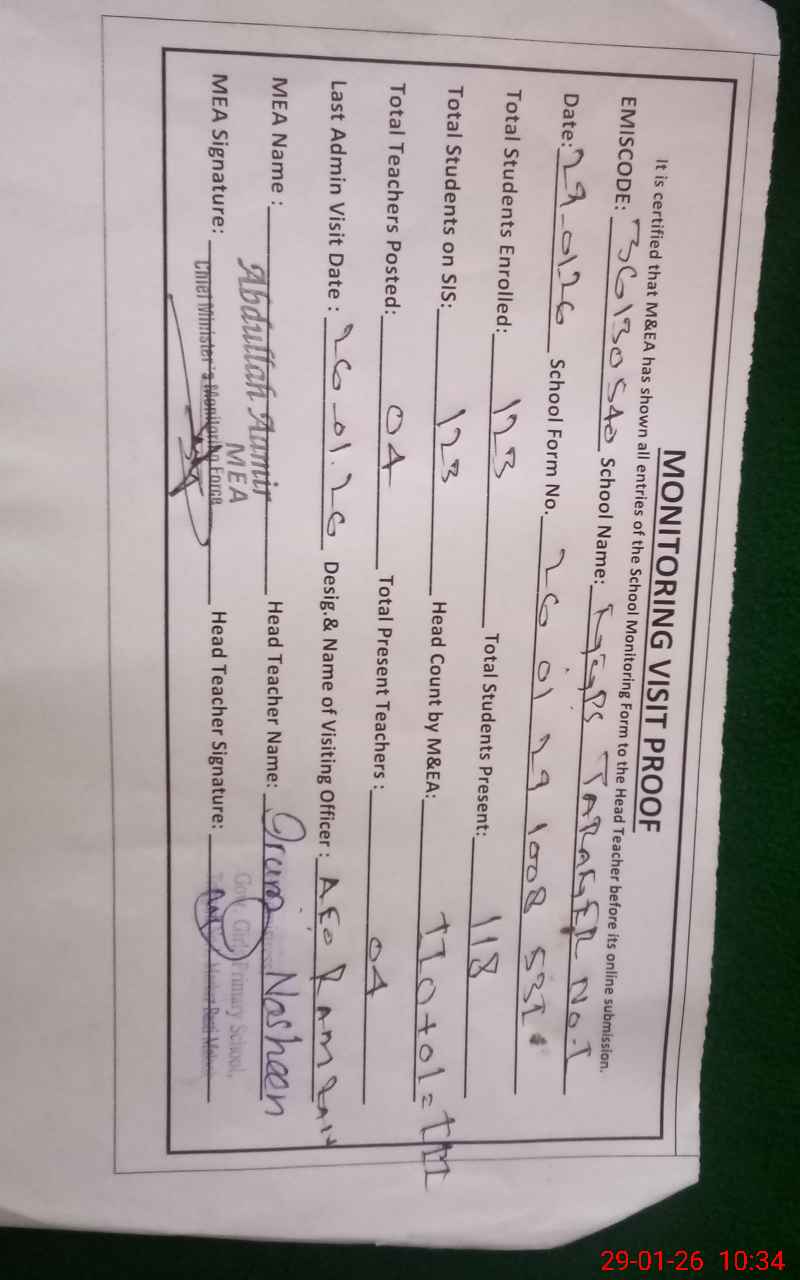 MONITORING VISIT PROOF
It is certified that M&EA has shown all entries of the School Monitoring Form to the Head Teacher before its online submission.
EMISCODE: 36130540 School Name: TARAGER No.I
Date: 29-01-26 School Form No. 26 01 29 1008 531
Total Students Enrolled: 123 Total Students Present: 118
Total Students on SIS: 123 Head Count by M&EA: 110+01=111
Total Teachers Posted: 04 Total Present Teachers: 04
Last Admin Visit Date: 26-01-26 Desig.& Name of Visiting Officer: AEO RAMZAN
MEA Name: Abdullah Aamir Head Teacher Name: Irum Nasheen
MEA
MEA Signature: Chief Minister's Monitoring Force Head Teacher Signature:
Govt. Girls Primary School,
29-01-26 10:34